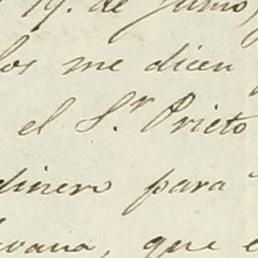 19. de Junio,
los me dicen
el S.r Prieto
dinero para
que